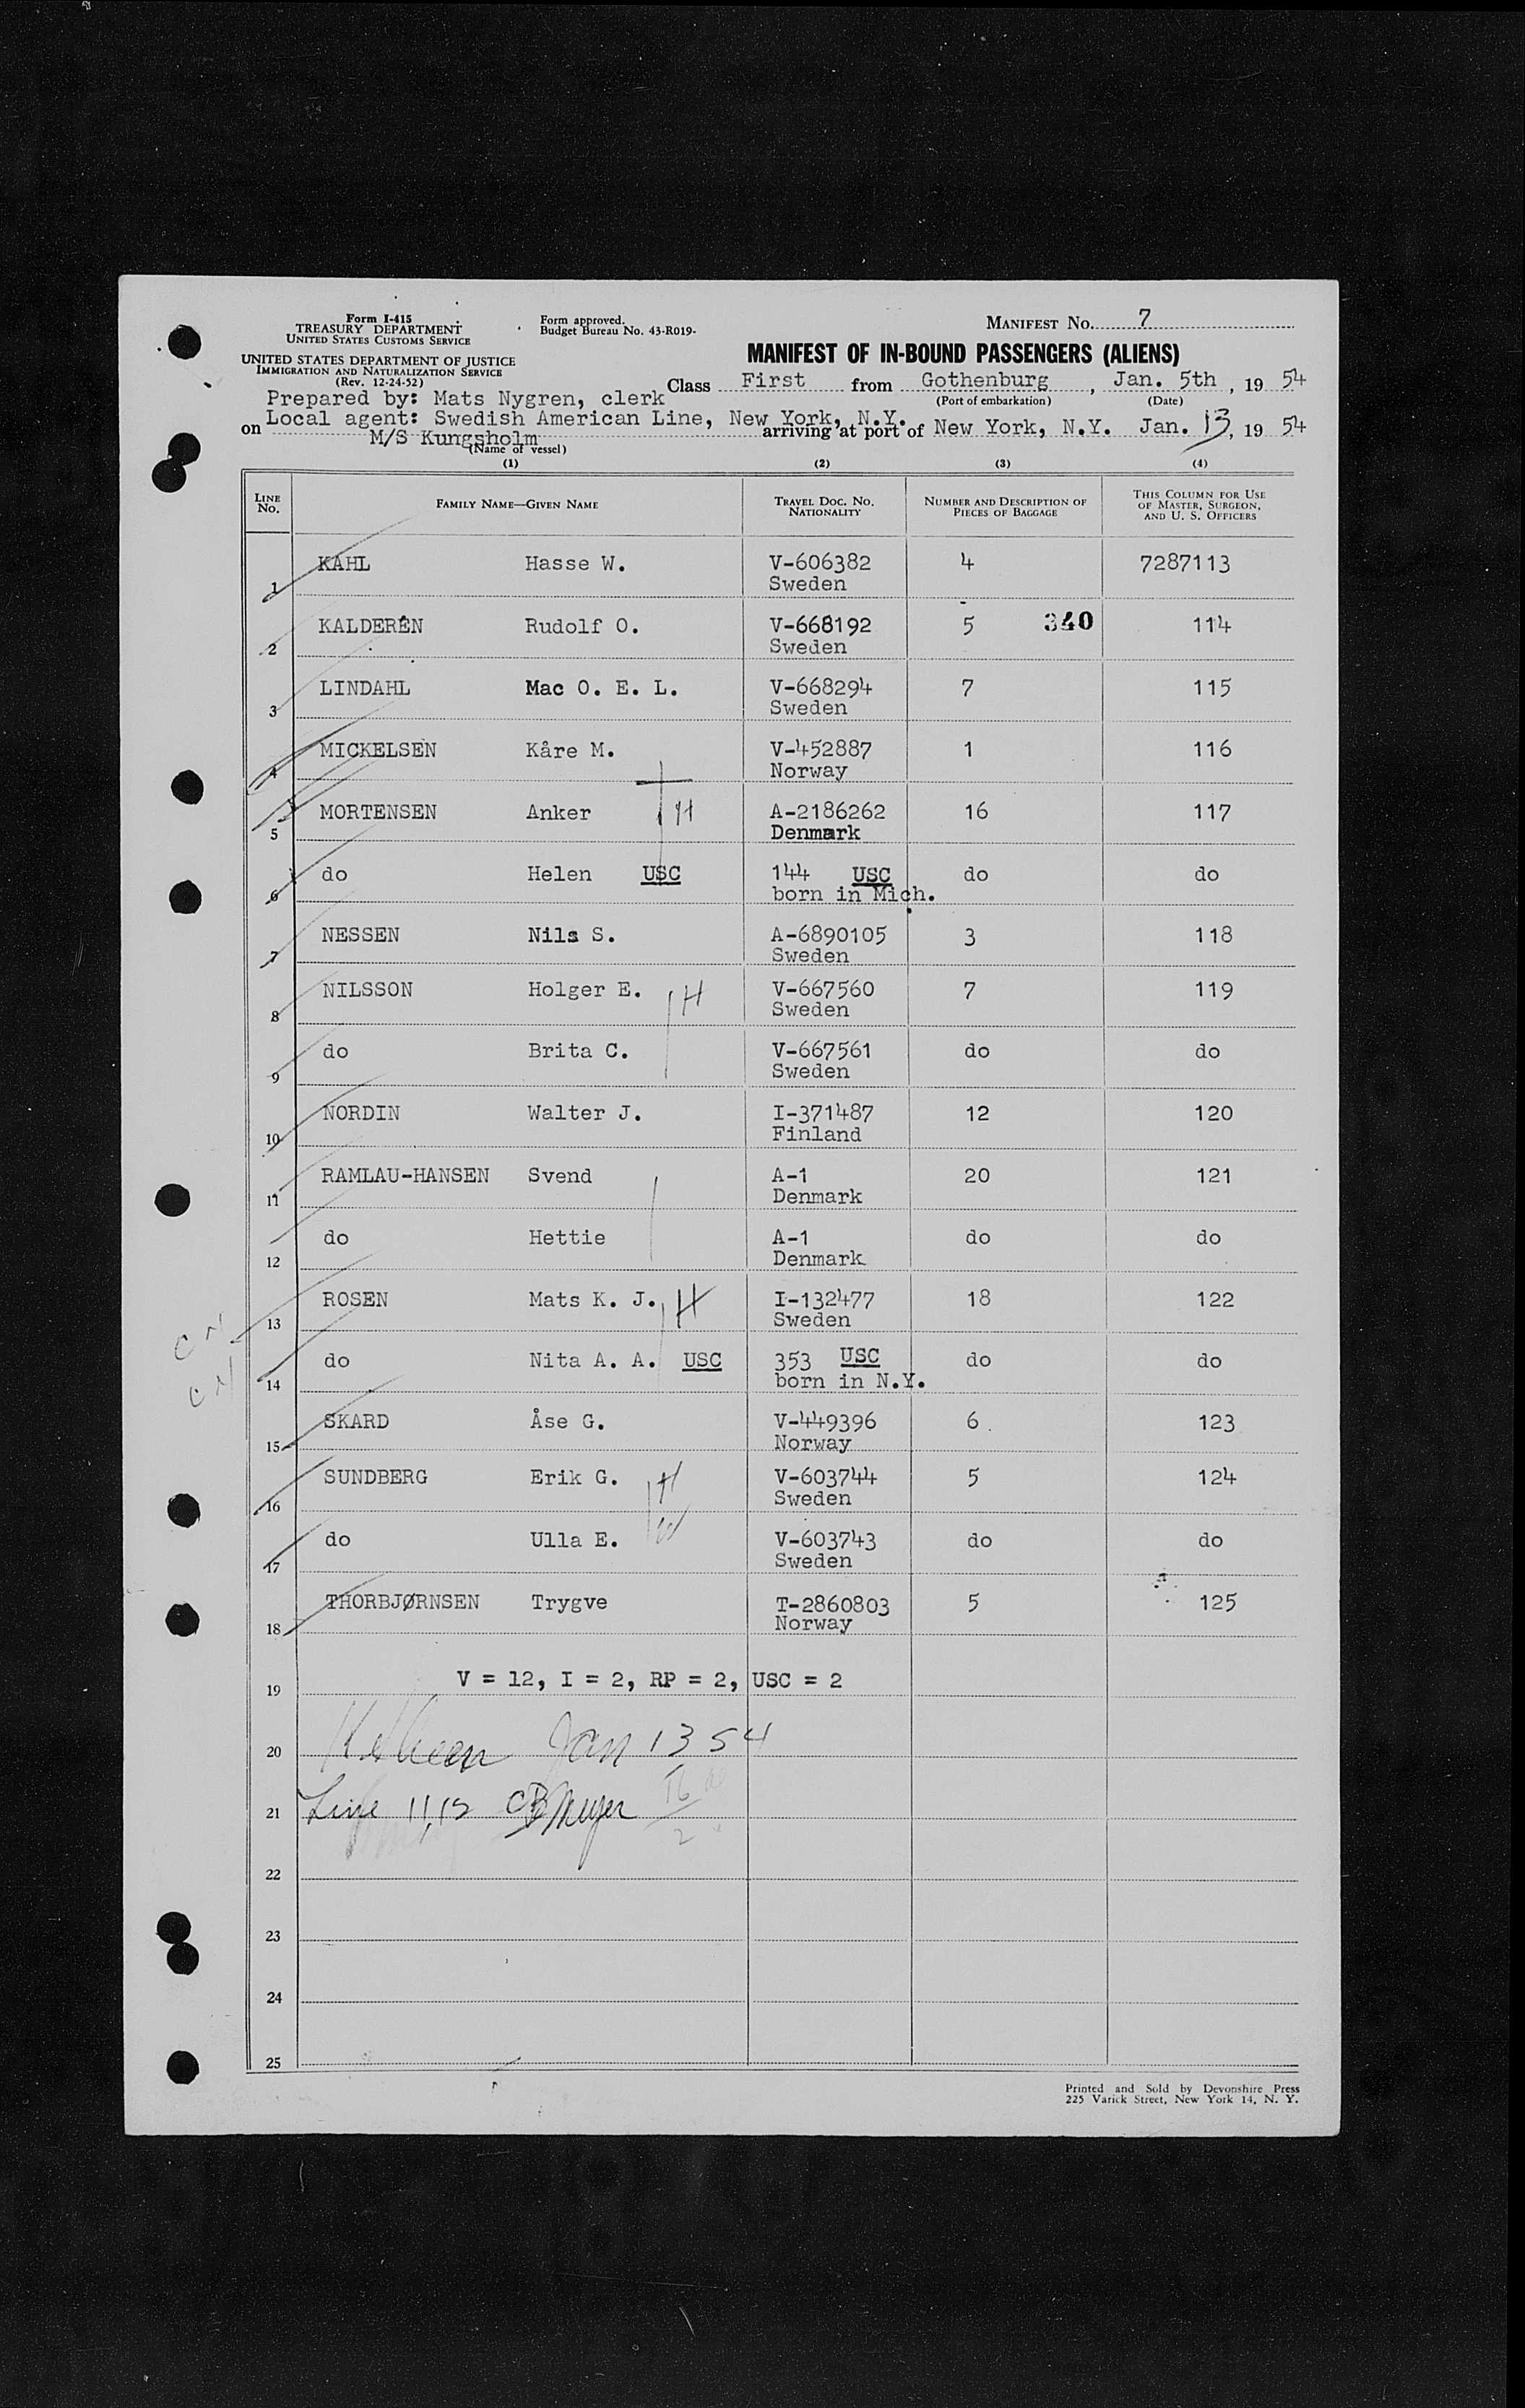 Form I-415
TREASURY DEPARTMENT
UNITED STATES CUSTOMS SERVICE
UNITED STATES DEPARTMENT OF JUSTICE
IMMIGRATION AND NATURALIZATION SERVICE
(Rev. 12-24-52)
Form approved.
Budget Bureau No. 43-R019-
MANIFEST NO. 7
MANIFEST OF IN-BOUND PASSENGERS (ALIENS)
Class First from Gothenburg, Jan. 5th, 19 54
(Port of embarkation) (Date)
Prepared by: Mats Nygren, clerk
Local agent: Swedish American Line, New York, N.Y.
on M/S Kungsholm arriving at port of New York, N.Y. Jan. 13, 19 54
(Name of vessel)
(1) (2) (3) (4)
LINE NO. FAMILY NAME—GIVEN NAME TRAVEL DOC. NO. NATIONALITY NUMBER AND DESCRIPTION OF PIECES OF BAGGAGE THIS COLUMN FOR USE OF MASTER, SURGEON, AND U. S. OFFICERS
1 KAHL Hasse W. V-606382 4 7287113
Sweden
2 KALDERÉN Rudolf O. V-668192 5 340 114
Sweden
3 LINDAHL Mac O. E. L. V-668294 7 115
Sweden
4 MICKELSEN Kåre M. V-452887 1 116
Norway
5 MORTENSEN Anker H A-2186262 16 117
Denmark
6 do Helen USC 144 USC do do
born in Mich.
7 NESSEN Nils S. A-6890105 3 118
Sweden
8 NILSSON Holger E. H V-667560 7 119
Sweden
9 do Brita C. V-667561 do do
Sweden
10 NORDIN Walter J. I-371487 12 120
Finland
11 RAMLAU-HANSEN Svend A-1 20 121
Denmark
12 do Hettie A-1 do do
Denmark
13 ROSEN Mats K. J. H I-132477 18 122
Sweden
14 do Nita A. A. USC 353 USC do do
born in N.Y.
15 SKARD Åse G. V-449396 6 123
Norway
16 SUNDBERG Erik G. H V-603744 5 124
Sweden
17 do Ulla E. W V-603743 do do
Sweden
18 THORBJØRNSEN Trygve T-2860803 5 125
Norway
19 V = 12, I = 2, RP = 2, USC = 2
20 Jan 13 54
21 Line 11,12 CB Meyer 16
2
22
23
24
25
Printed and Sold by Devonshire Press
225 Varick Street, New York 14, N. Y.